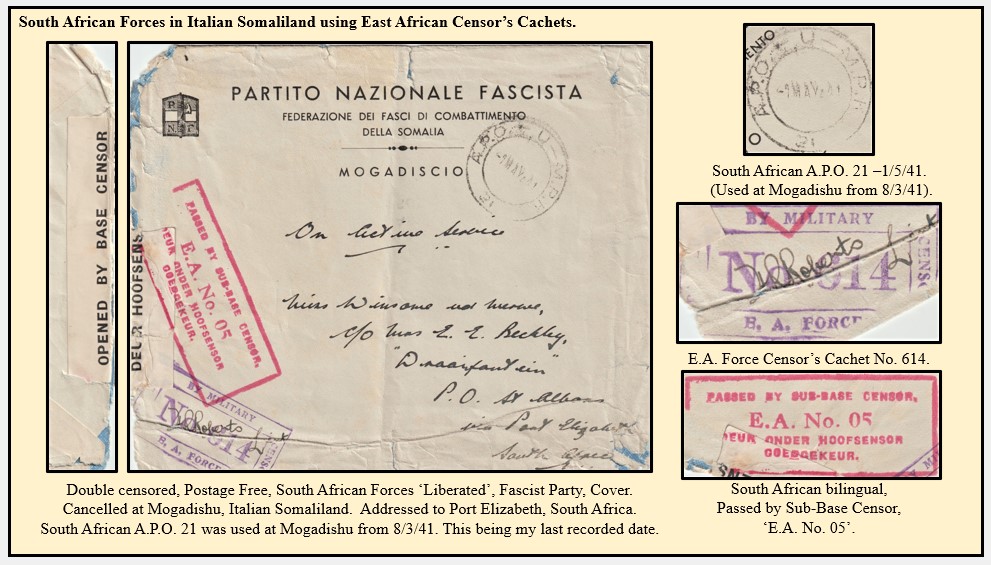 South African Forces in Italian Somaliland using East African Censor's Cachets.
OPENED BY BASE CENSOR
P.
N. F.
PARTITO NAZIONALE FASCISTA
FEDERAZIONE DEI FASCI DI COMBATTIMENTO
DELLA SOMALIA
MOGADISCIO
A.P.O. U-M.P.K
-1 MAY.41
21
On Active Service
DEUR HOOFSENS
PASSED BY SUB-BASE CENSOR,
E.A. No. 05
DEUR ONDER HOOFSENSOR
GOEDGEKEUR.
Miss Winsome
c/o Mrs E. E. Beckley,
"Draaifontein"
P.O. St Albans
via Port Elizabeth
South Africa
BY MILITARY
No. 614
Roberts Lt
E. A. FORCE
CENSO
ENTO
A.P.O. U-M.P.K
-1 MAY.41
21
O
South African A.P.O. 21 –1/5/41.
(Used at Mogadishu from 8/3/41).
BY MILITARY
No. 614
Roberts Lt
E. A. FORCE
CENSO
E.A. Force Censor's Cachet No. 614.
PASSED BY SUB-BASE CENSOR,
E.A. No. 05
DEUR ONDER HOOFSENSOR
GOEDGEKEUR.
South African bilingual,
Passed by Sub-Base Censor,
'E.A. No. 05'.
Double censored, Postage Free, South African Forces 'Liberated', Fascist Party, Cover.
Cancelled at Mogadishu, Italian Somaliland.  Addressed to Port Elizabeth, South Africa.
South African A.P.O. 21 was used at Mogadishu from 8/3/41. This being my last recorded date.